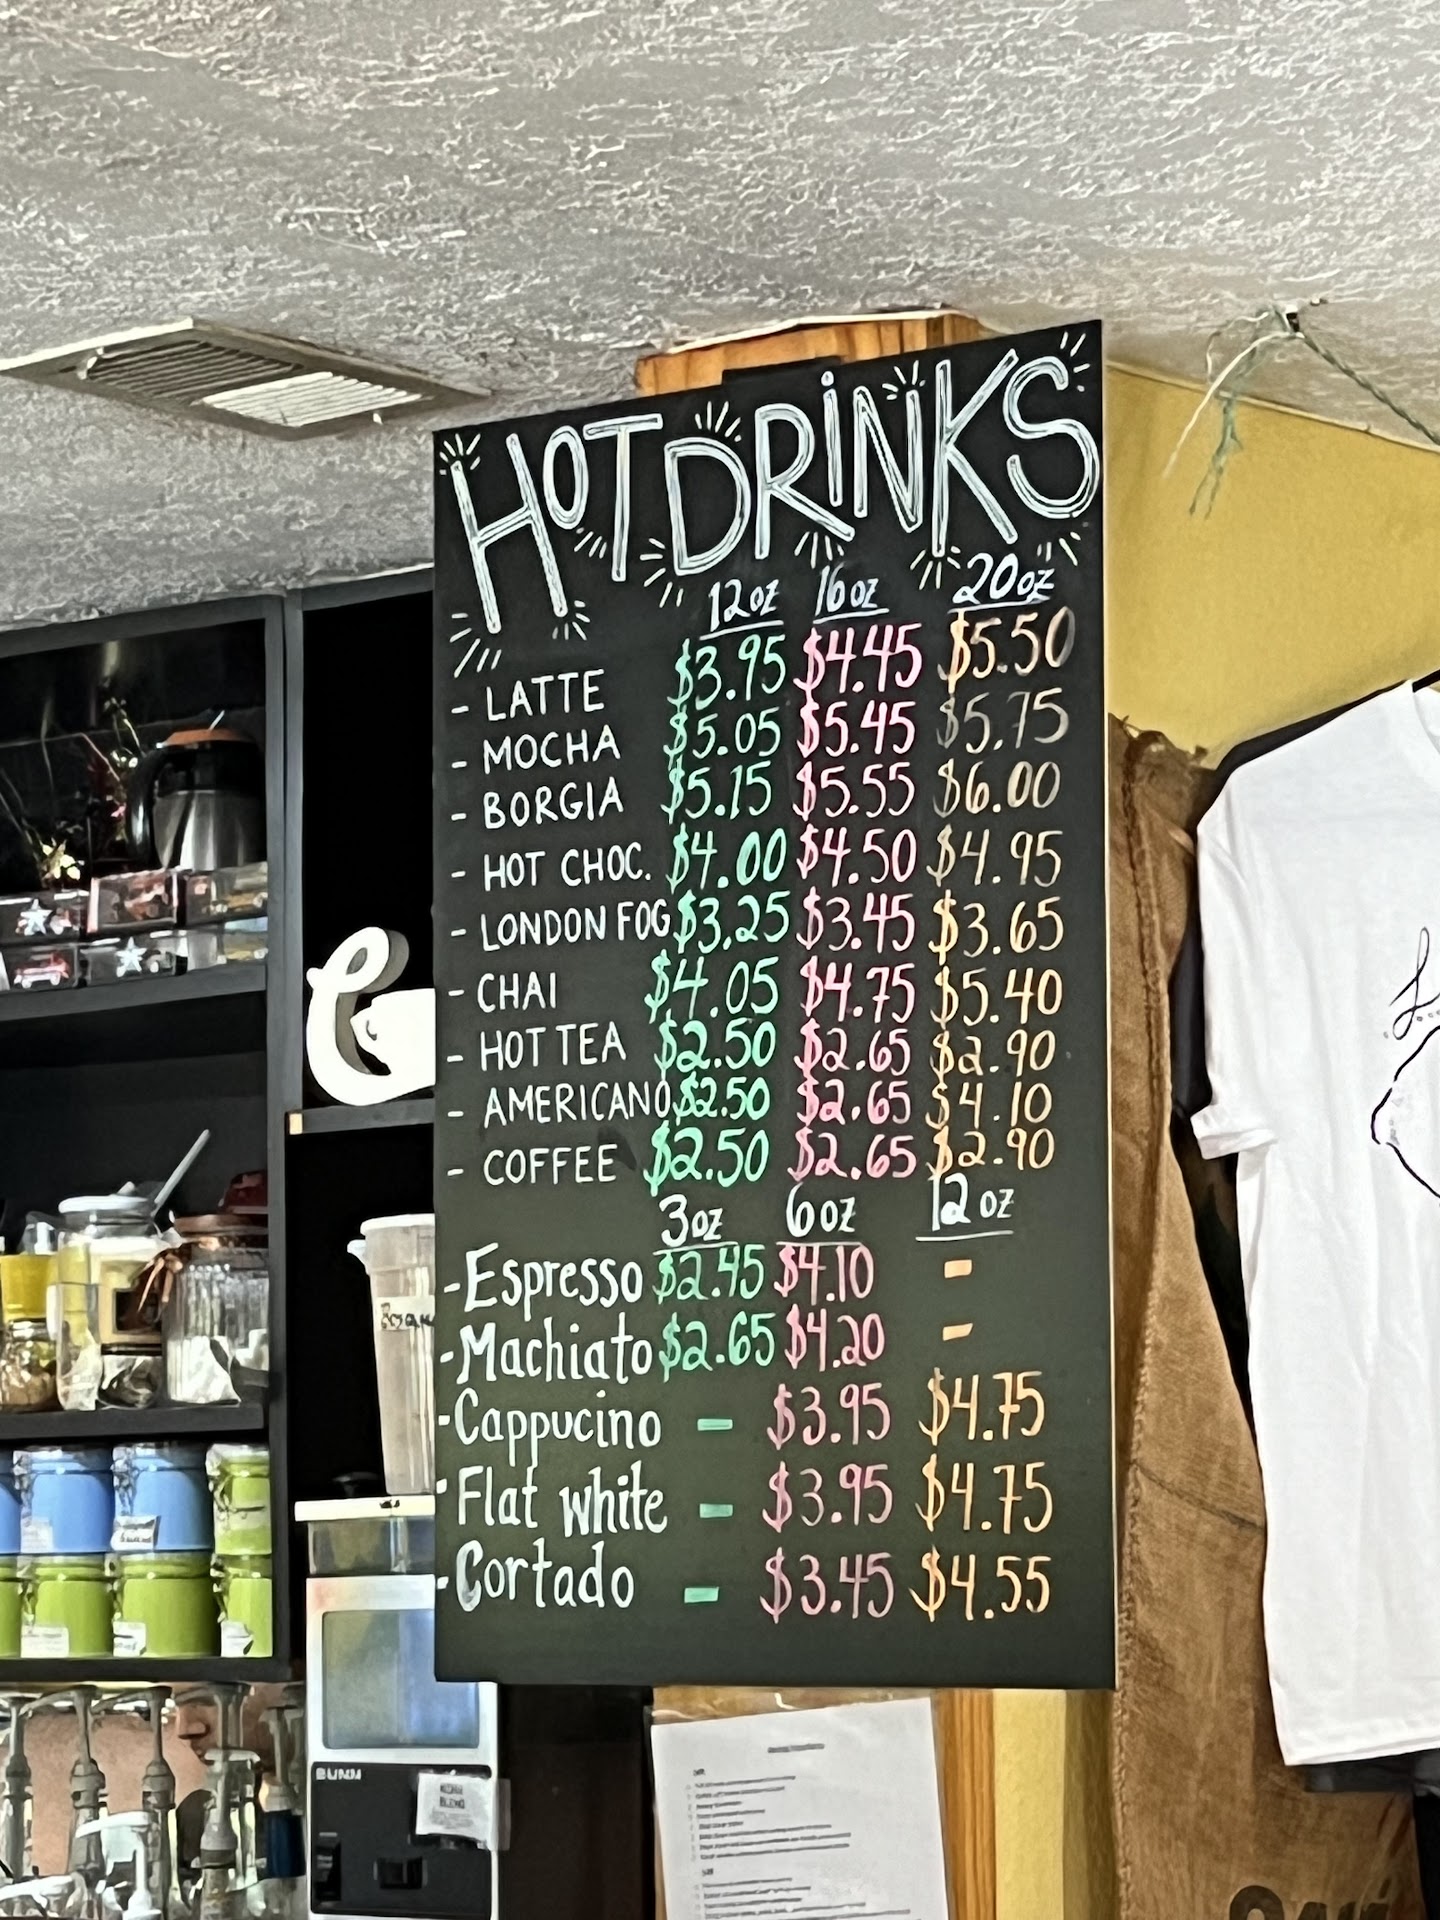 HOT DRINKS
12oz 16oz 20oz
- LATTE $3.95 $4.45 $5.50
- MOCHA $5.05 $5.45 $5.75
- BORGIA $5.15 $5.55 $6.00
- HOT CHOC. $4.00 $4.50 $4.95
- LONDON FOG $3.25 $3.45 $3.65
- CHAI $4.05 $4.75 $5.40
- HOT TEA $2.50 $2.65 $2.90
- AMERICANO $2.50 $2.65 $4.10
- COFFEE $2.50 $2.65 $2.90
3oz 6oz 12oz
- Espresso $2.45 $4.10 -
- Machiato $2.65 $4.20 -
- Cappucino - $3.95 $4.75
- Flat white - $3.95 $4.75
- Cortado - $3.45 $4.55
BUNN
BLEND